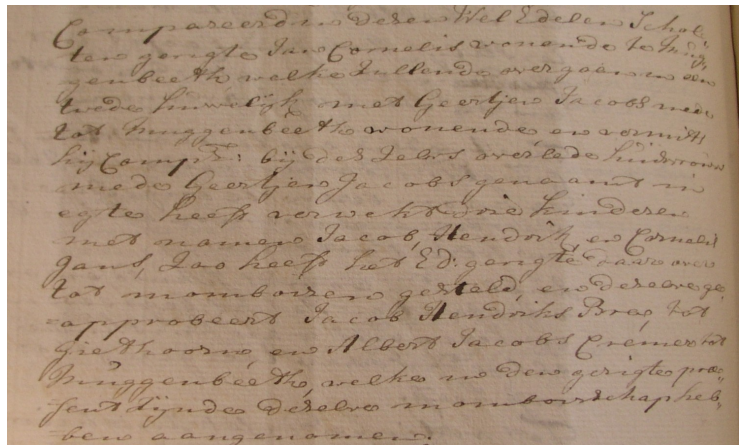 Compareerden Deesen Wel Edelen Schol-
ten gerigte Jan Cornelis wonende te Mug-
genbeeth welke Zullende overgaan in een
twede huwelijk met Geertjen Jacobs mede
tot Muggenbeeth wonende en vermits
hij Compt: bij des Zelvs overlede huisvrouw
mede Geertjen Jacobs genaamt in
egte heeft verwekt drie kinderen
met namen Jacob, Hendrik, en Cornelis
Jans, Zoo heeft het Ed: gerigte daar over
tot momboiren gesteld, en deselve ge-
approbeert Jacob Hendriks Brog, tot
Giethoorn, en Albert Jacobs Cremer tot
Muggenbeeth, welke in den gerigte præ-
sent Zijnde deselve momboirschap heb-
ben aangenomen.